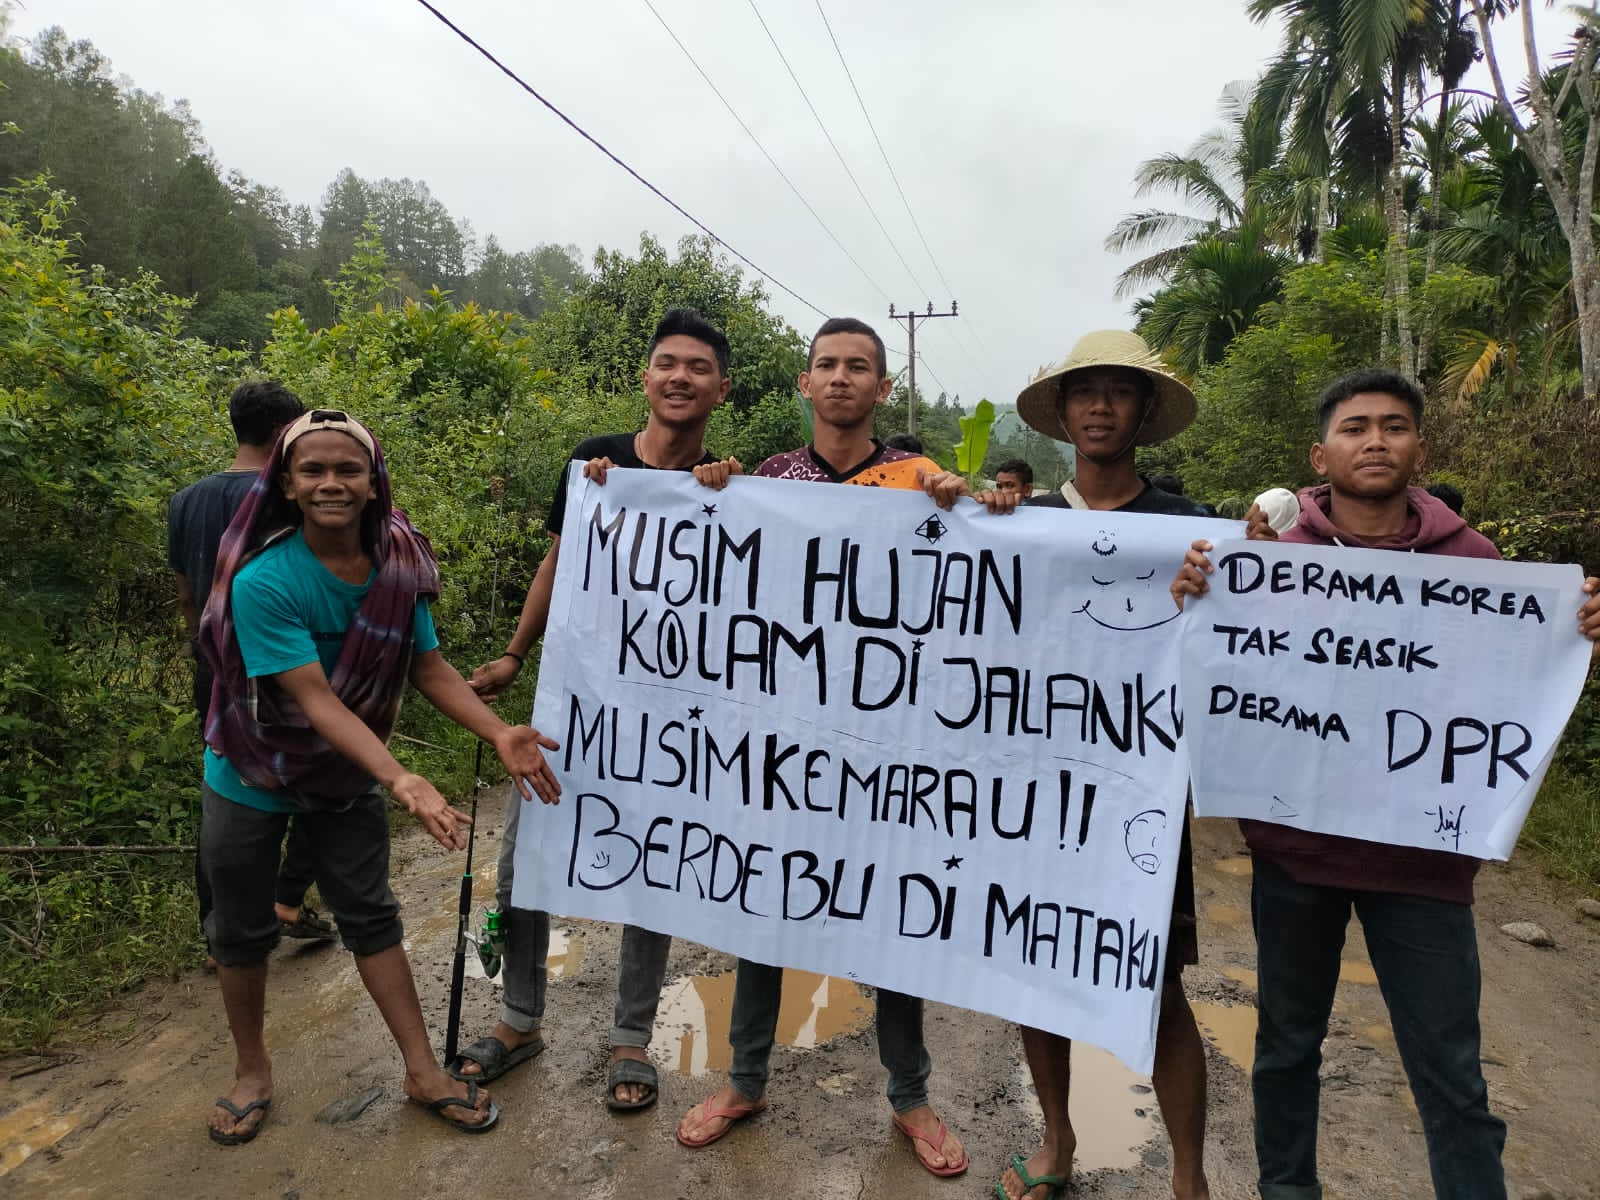 MUSIM HUJAN
KOLAM DI JALANKU
MUSIM KEMARAU!!
BERDEBU DI MATAKU
DERAMA KOREA
TAK SEASIK
DERAMA DPR